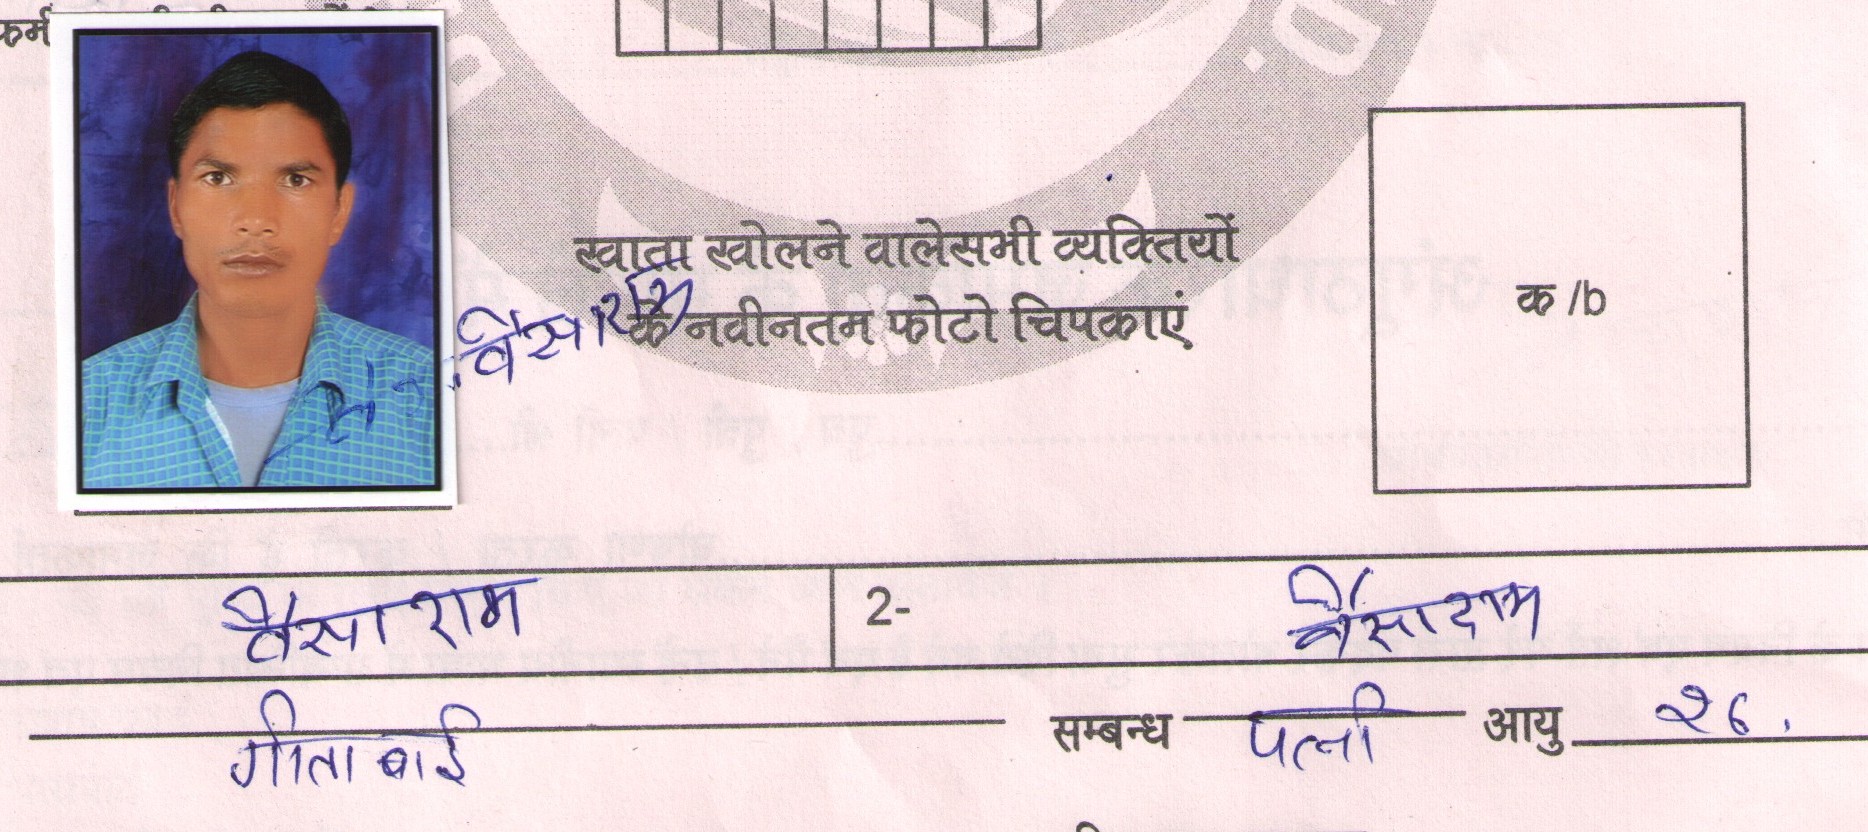 खाता खोलने वालेसभी व्यक्तियों
के नवीनतम फोटो चिपकाएं
क /b
बैसाराम
बैसाराम 2- बैसाराम
गीता बाई सम्बन्ध पत्नी आयु २६.